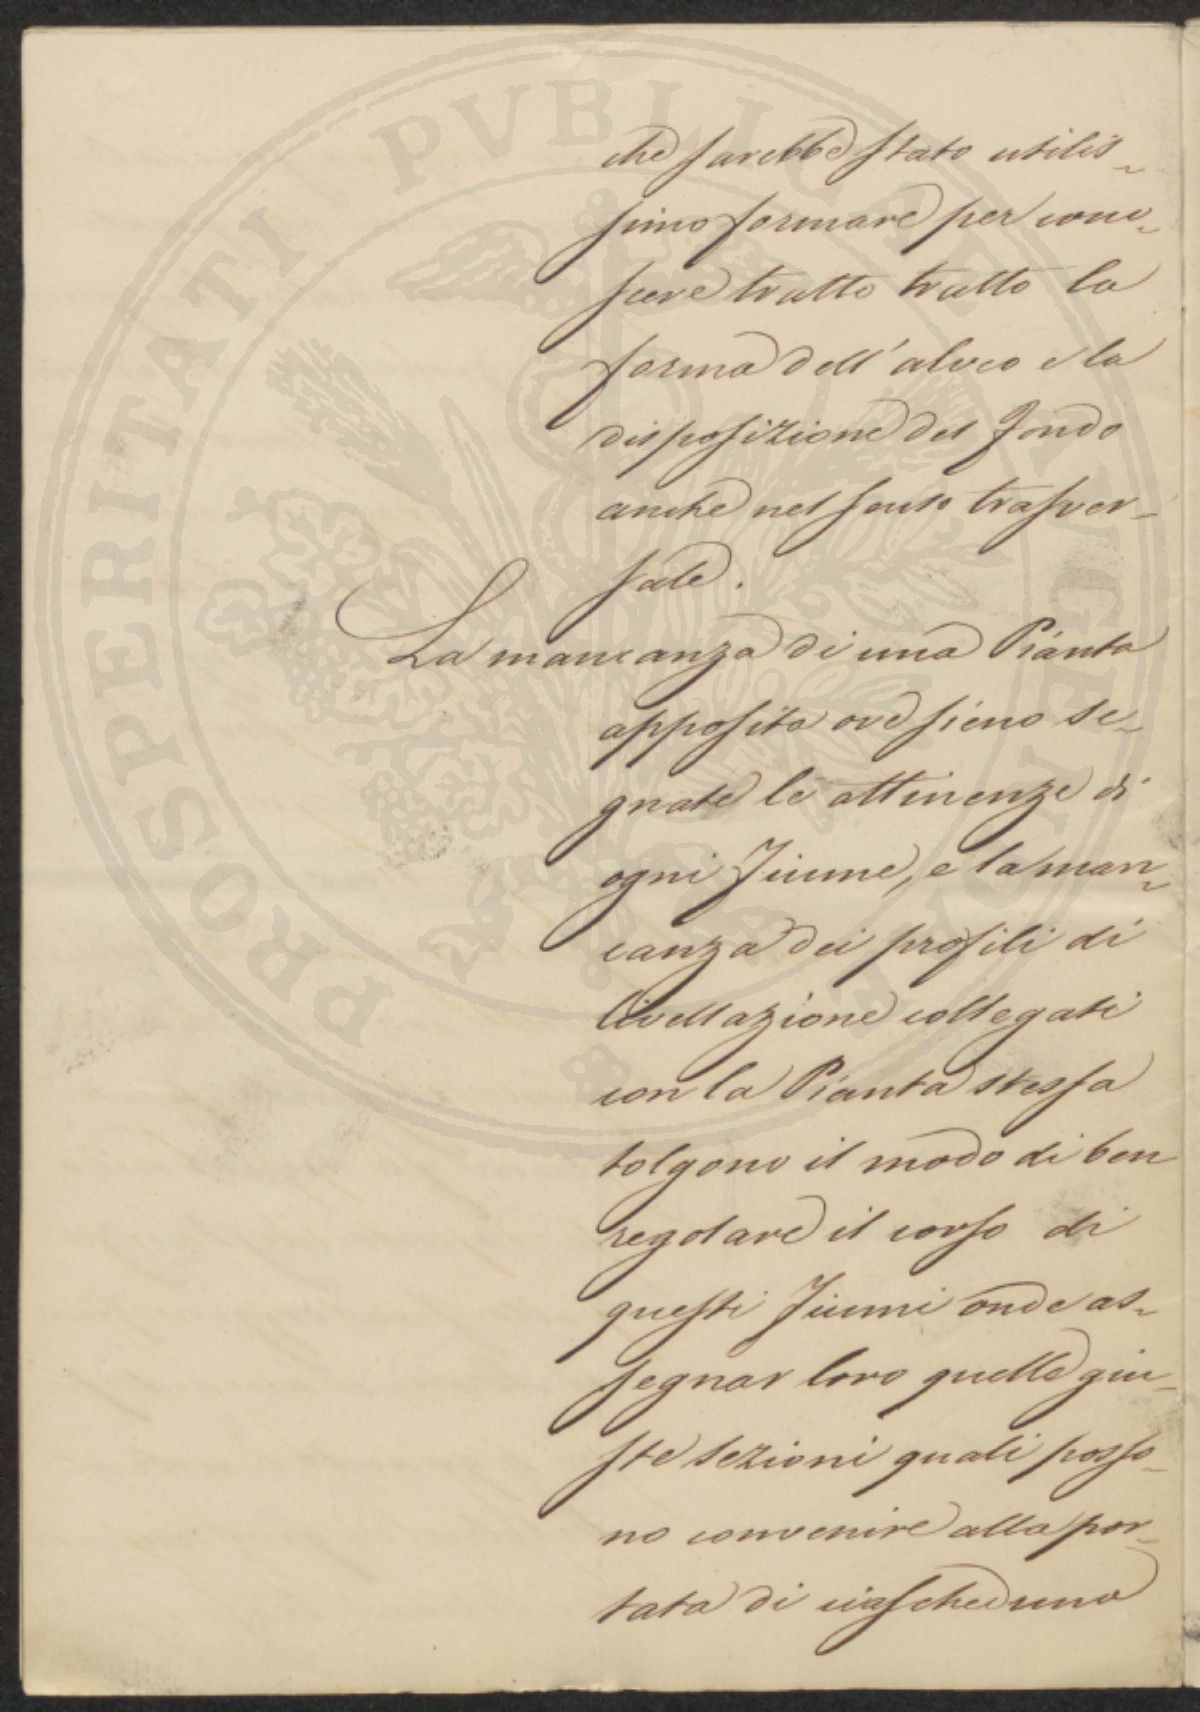 PROSPERITATI PVBLICAE AVGENDAE
che sarebbe stato utilis-
simo formare per cono-
scere tratto tratto la
forma dell'alveo e la
disposizione del fondo
anche nel senso trasver-
sale.
La mancanza di una Pianta
apposita ove sieno se-
gnate le attinenze di
ogni Fiume, e la man-
canza dei profili di
livellazione collegati
con la Pianta stessa
tolgono il modo di ben
regolare il corso di
questi Fiumi onde as-
segnar loro quelle giu-
ste sezioni quali posso-
no convenire alla por-
tata di ciascheduno